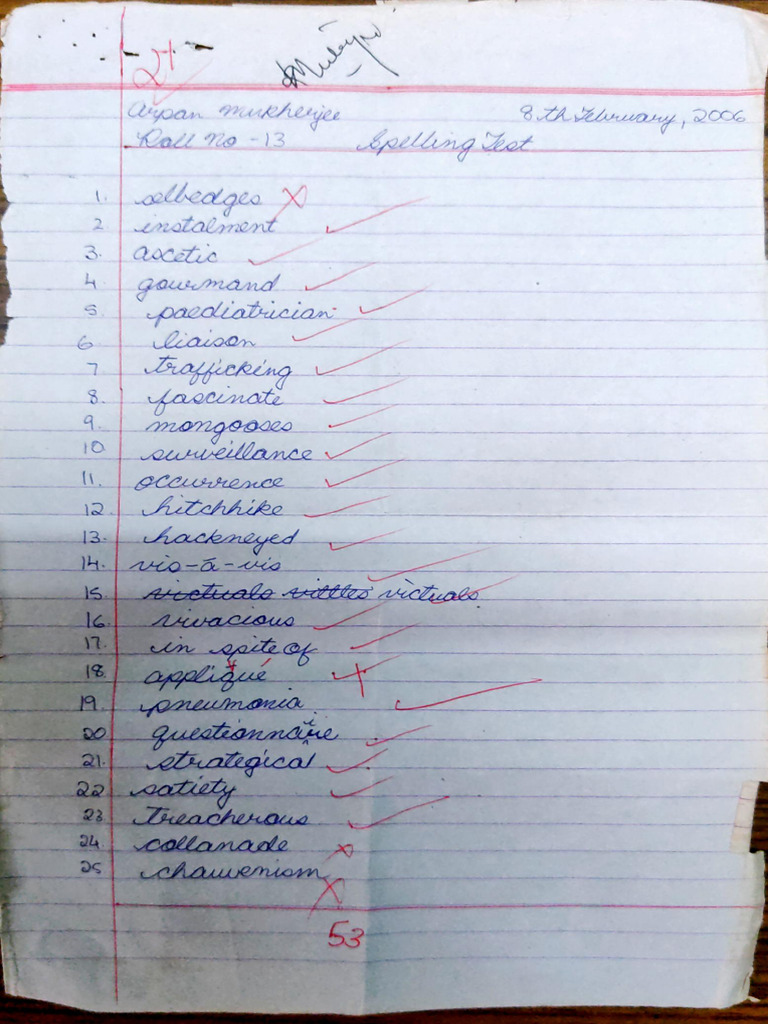 21
Arpan Mukherjee 8th February, 2006
Roll No - 13 Spelling Test
1. selbedges
2 instalment
3. ascetic
4 gourmand
5 paediatrician
6 liaison
7 trafficking
8. fascinate
9. mongooses
10 surveillance
11. occurrence
12. hitchhike
13. hackneyed
14. vis-ā-vis
15 victuals vittles victuals
16. vivacious
17. in spite of
18 appliqué
19. pneumonia
20 questionnaire
21. strategical
22 satiety
23 treacherous
24 collanade
25 chauvenism
53